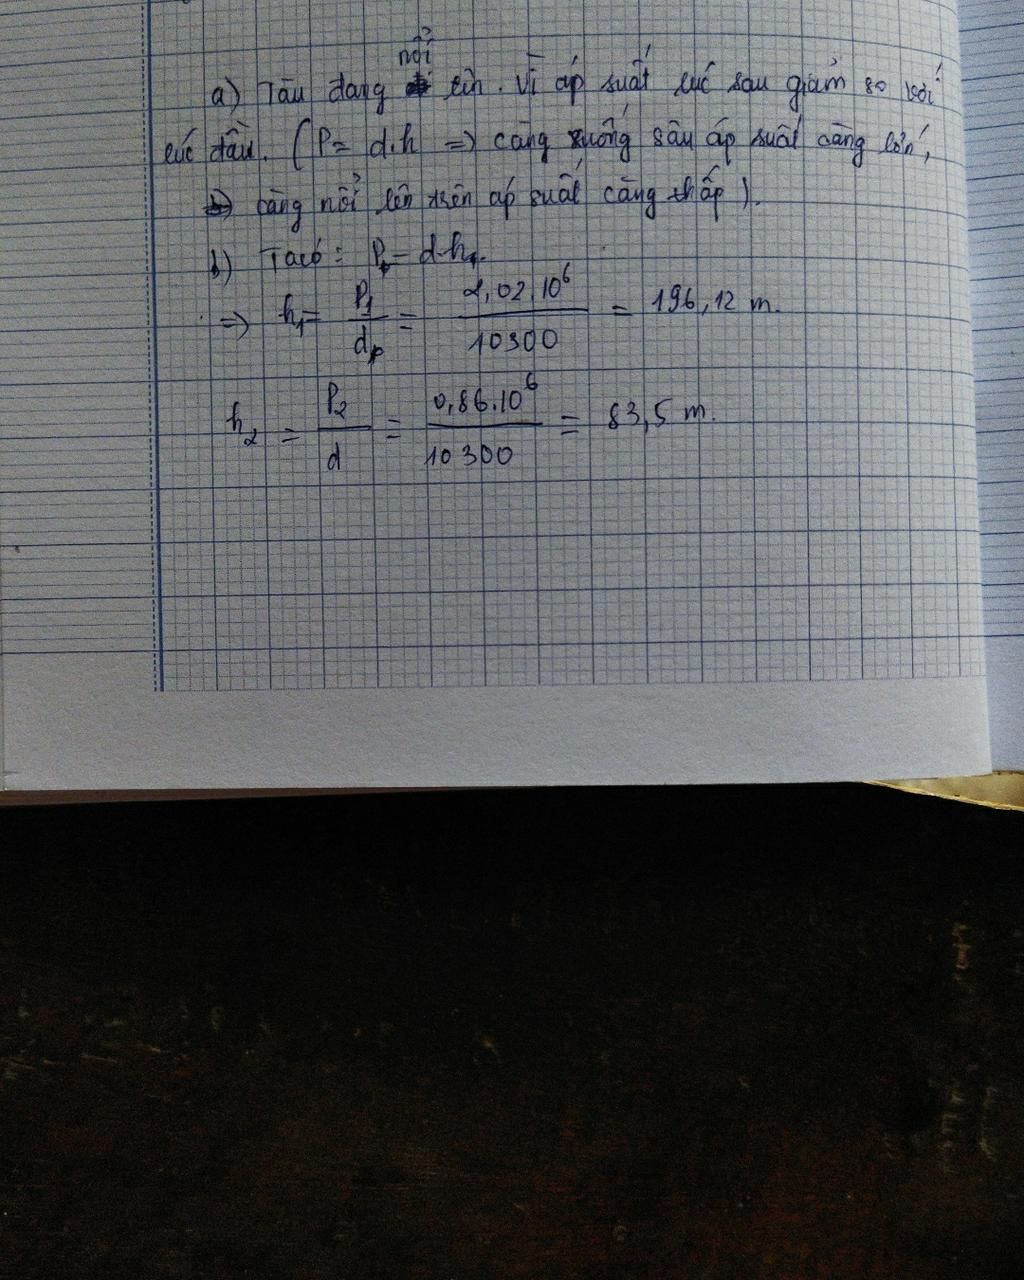 nổi
a) Tàu đang lên. Vì áp suất lúc sau giảm so với
lúc đầu. (P = d.h => càng xuống sâu áp suất càng lớn,
càng nổi lên trên áp suất càng thấp).
b) Ta có: P1 = d.h1.
=> h1 = P1/d = 2,02.10^6/10300 = 196,12 m.
h2 = P2/d = 0,86.10^6/10300 = 83,5 m.